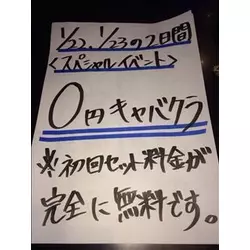 1/22、1/23の2日間
<スペシャルイベント>
0円キャバクラ
※初回セット料金が
完全に無料です。